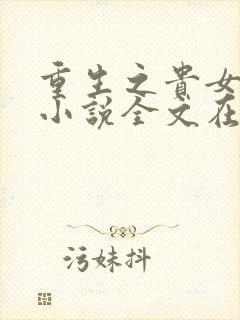 重生之貴女
小説全文在
污妹抖